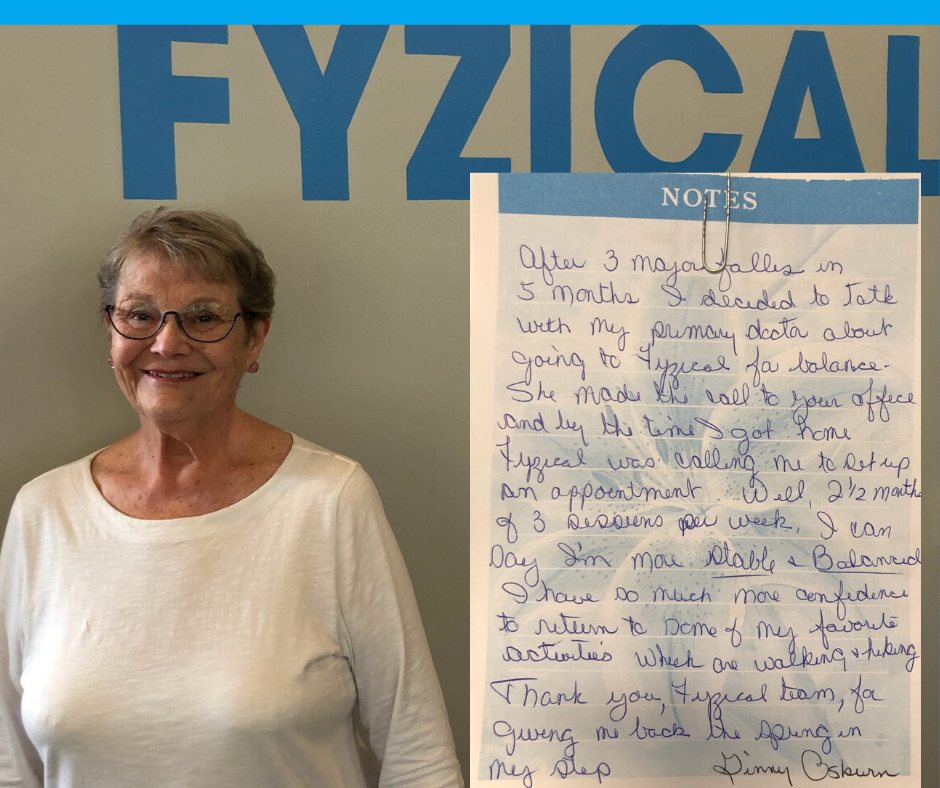 FYZICAL
NOTES
After 3 major falls in
5 months I decided to talk
with my primary doctor about
going to Fyzical for balance.
She made the call to your office
and by the time I got home
Fyzical was calling me to set up
an appointment. Well 2 1/2 months
of 3 sessions per week, I can
say I'm more stable & Balanced
I have so much more confidence
to return to some of my favorite
activities which are walking & hiking
Thank you, Fyzical team, for
giving me back the spring in
my step Ginny Osburn